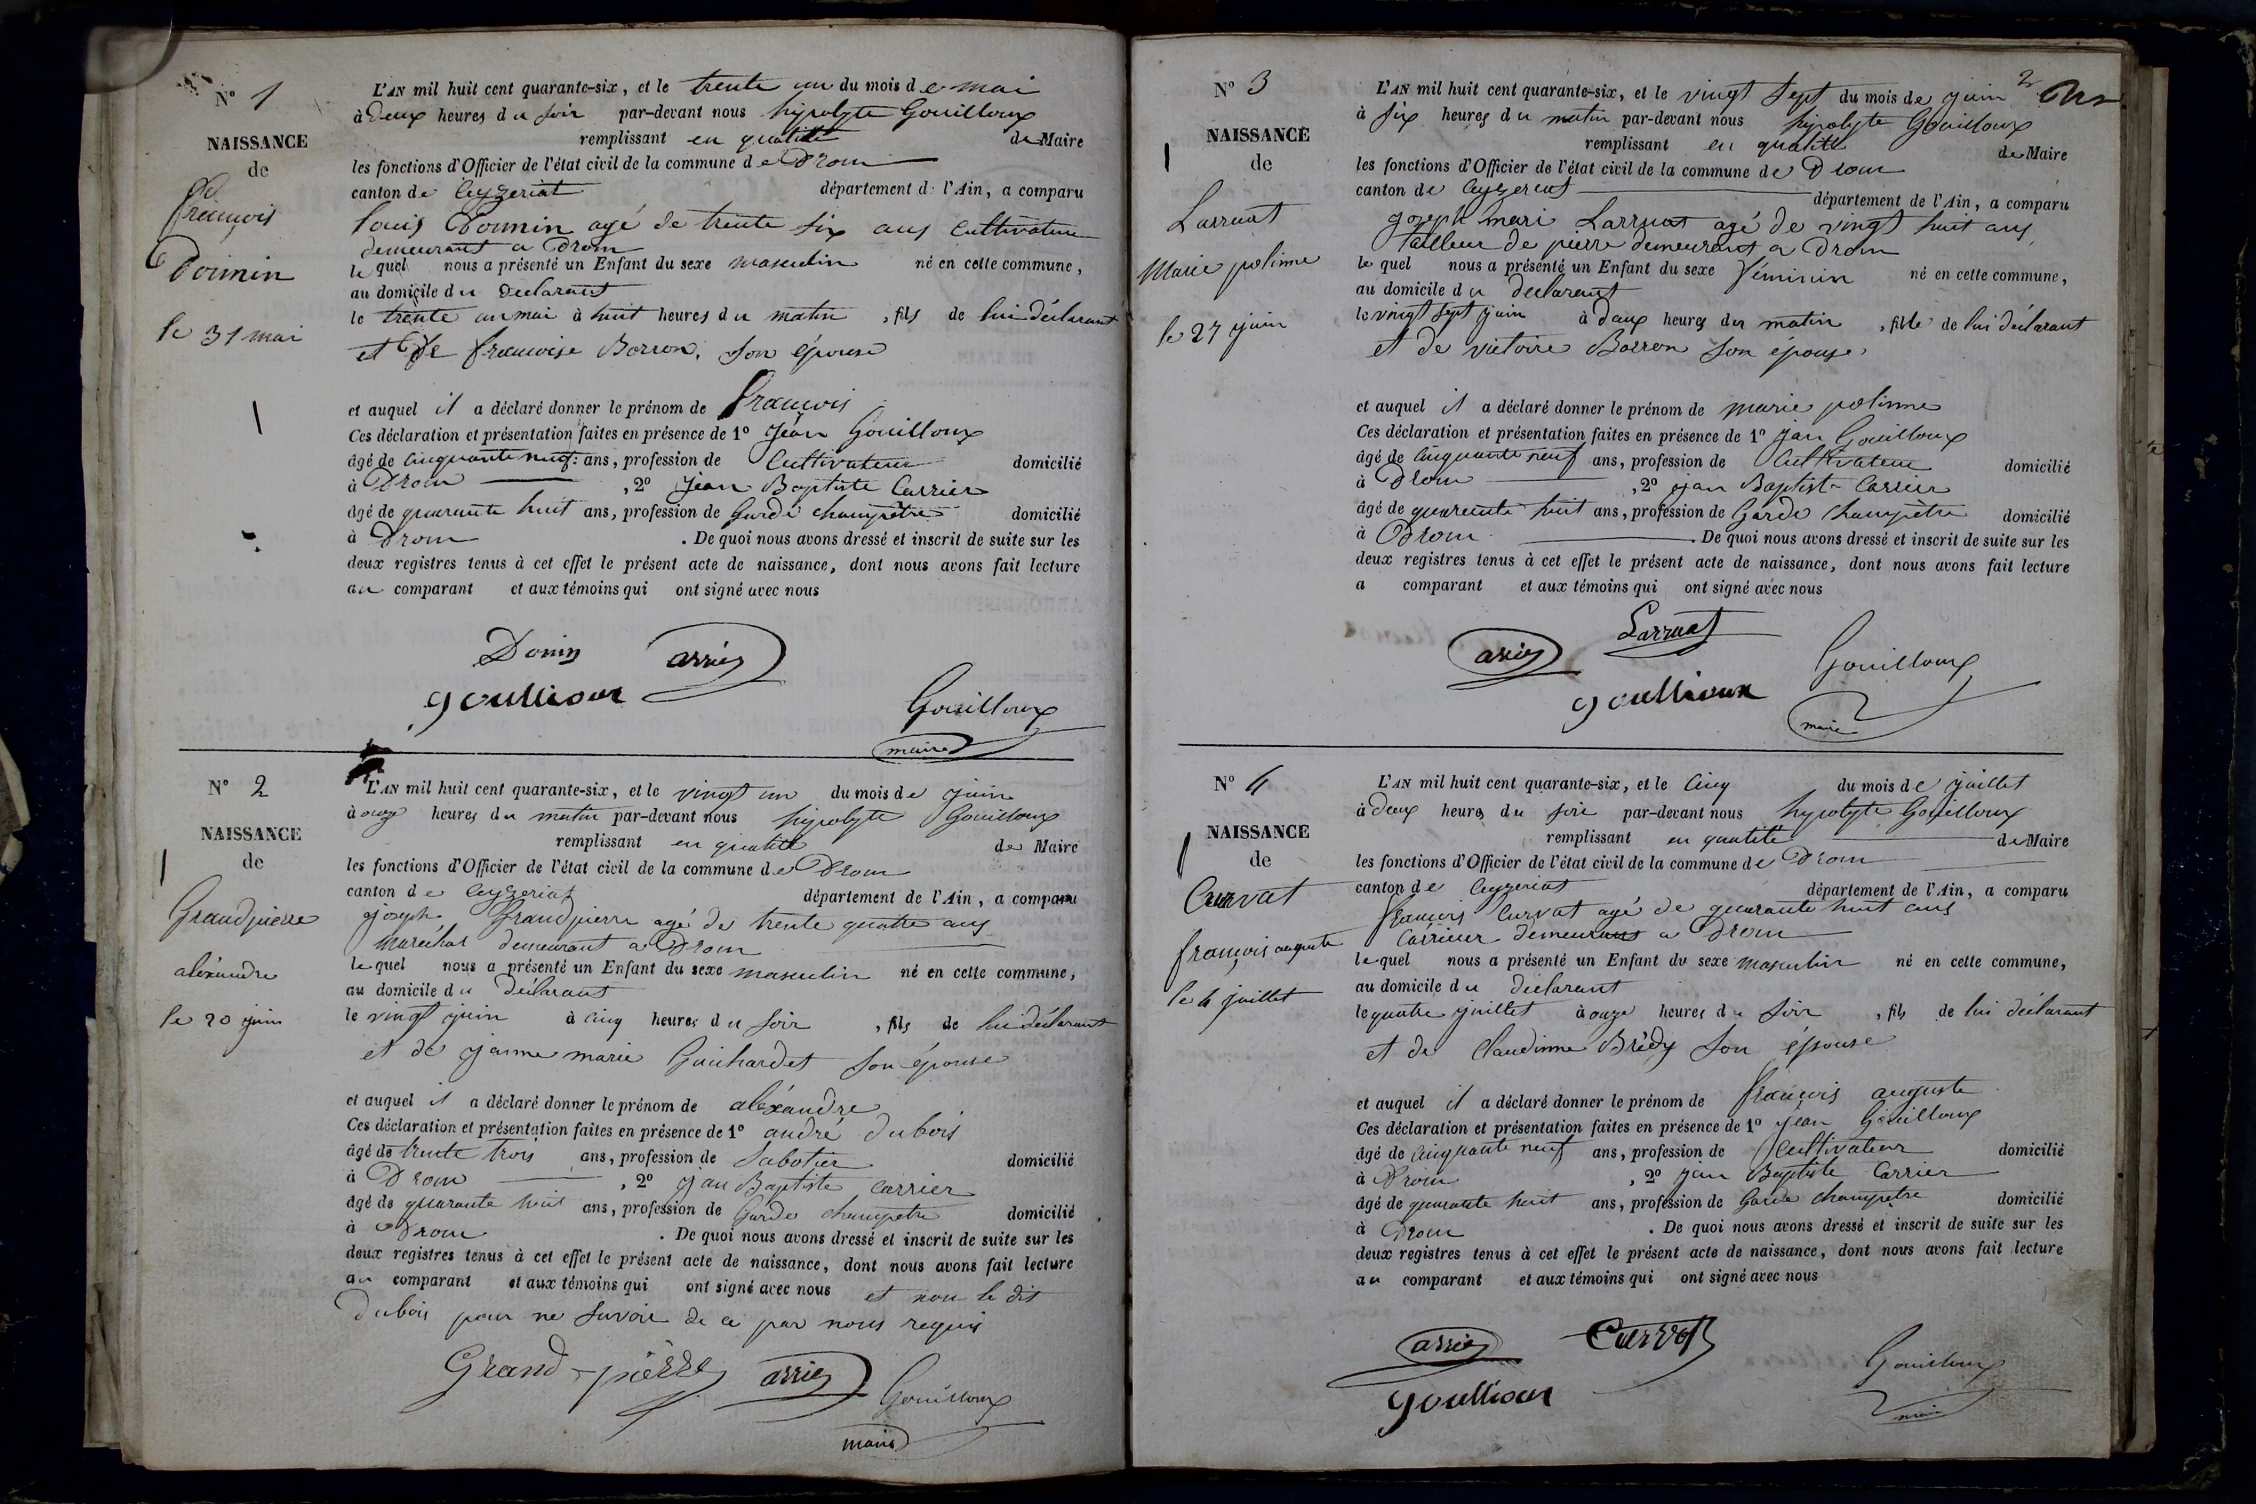 N° 1
NAISSANCE
de
françois
Donnin
le 31 mai
L'AN mil huit cent quarante-six, et le trente un du mois de mai
à deux heures du soir par-devant nous hipolyte Gouilloux
remplissant en qualité de Maire
les fonctions d'Officier de l'état civil de la commune de Drom
canton de Ceyzeriat département de l'Ain, a comparu
louis Donnin agé de trente six ans cultivateur
demeurant a Drom
lequel nous a présenté un Enfant du sexe masculin né en cette commune,
au domicile du declarant
le trente un mai à huit heures du matin, fils de lui déclarant
et de francoise Borron, son épouse
et auquel il a déclaré donner le prénom de françois
Ces déclaration et présentation faites en présence de 1° Jean Gouilloux
âgé de cinquante neuf ans, profession de Cultivateur domicilié
à Drom, 2° Jean Baptiste Carrier
âgé de quarante huit ans, profession de Garde champêtre domicilié
à Drom. De quoi nous avons dressé et inscrit de suite sur les
deux registres tenus à cet effet le présent acte de naissance, dont nous avons fait lecture
au comparant et aux témoins qui ont signé avec nous
Donin arrier
goullioux
Gouilloux
maire
N° 2
NAISSANCE
de
Grandpierre
aléxandre
le 20 juin
L'AN mil huit cent quarante-six, et le vingt un du mois de juin
à onze heures du matin par-devant nous hipolyte Gouilloux
remplissant en qualité de Maire
les fonctions d'Officier de l'état civil de la commune de Drom
canton de Ceyzeriat département de l'Ain, a comparu
joseph Grandpierre agé de trente quatre ans
maréchal demeurant a Drom
lequel nous a présenté un Enfant du sexe masculin né en cette commune,
au domicile du déclarant
le vingt juin à cinq heures du soir, fils de lui déclarant
et de janne marie Guichardet son épouse
et auquel il a déclaré donner le prénom de aléxandre
Ces déclaration et présentation faites en présence de 1° andré dubois
âgé de trente trois ans, profession de Sabotier domicilié
à Drom, 2° jan Baptiste carrier
âgé de quarante huit ans, profession de Garde champetre domicilié
à Drom. De quoi nous avons dressé et inscrit de suite sur les
deux registres tenus à cet effet le présent acte de naissance, dont nous avons fait lecture
au comparant et aux témoins qui ont signé avec nous et non le dit
dubois pour ne savoir de ce par nous requis
Grand-pierre arrier Gouilloux
maire
2
N° 3
NAISSANCE
de
Larruat
Marie poline
le 27 juin
L'AN mil huit cent quarante-six, et le vingt sept du mois de juin
à six heures du matin par-devant nous hipolyte Gouilloux
remplissant en qualité de Maire
les fonctions d'Officier de l'état civil de la commune de Drom
canton de Ceyzeriat département de l'Ain, a comparu
joseph mari Larruat agé de vingt huit ans
tailleur de pierre demeurant a Drom
lequel nous a présenté un Enfant du sexe féminin né en cette commune,
au domicile du declarant
le vingt sept juin à deux heures du matin, fille de lui déclarant
et de victoire Borron son épouse
et auquel il a déclaré donner le prénom de marie poline
Ces déclaration et présentation faites en présence de 1° jan Gouilloux
âgé de cinquante neuf ans, profession de Cultivateur domicilié
à Drom, 2° jan Baptiste Carrier
âgé de quarente huit ans, profession de Garde champetre domicilié
à Drom. De quoi nous avons dressé et inscrit de suite sur les
deux registres tenus à cet effet le présent acte de naissance, dont nous avons fait lecture
a comparant et aux témoins qui ont signé avec nous
Larruat
arrier Gouilloux
goullioux
maire
N° 4
NAISSANCE
de
Curvat
françois auguste
le 4 juillet
L'AN mil huit cent quarante-six, et le cinq du mois de juillet
à deux heures du soir par-devant nous hypolyte Gouilloux
remplissant en qualité de Maire
les fonctions d'Officier de l'état civil de la commune de Drom
canton de Ceyzeriat département de l'Ain, a comparu
françois Curvat agé de quarante huit ans
carrieur demeurant a Drom
lequel nous a présenté un Enfant du sexe masculin né en cette commune,
au domicile du declarant
le quatre juillet à onze heures du soir, fils de lui déclarant
et de Claudinne Brédy son épouse
et auquel il a déclaré donner le prénom de françois auguste
Ces déclaration et présentation faites en présence de 1° jean Gouilloux
âgé de cinquante neuf ans, profession de Cultivateur domicilié
à Drom, 2° jan Baptiste Carrier
âgé de quarante huit ans, profession de Garde champetre domicilié
à Drom. De quoi nous avons dressé et inscrit de suite sur les
deux registres tenus à cet effet le présent acte de naissance, dont nous avons fait lecture
au comparant et aux témoins qui ont signé avec nous
arrier Curvat
Gouilloux
goullioux
maire